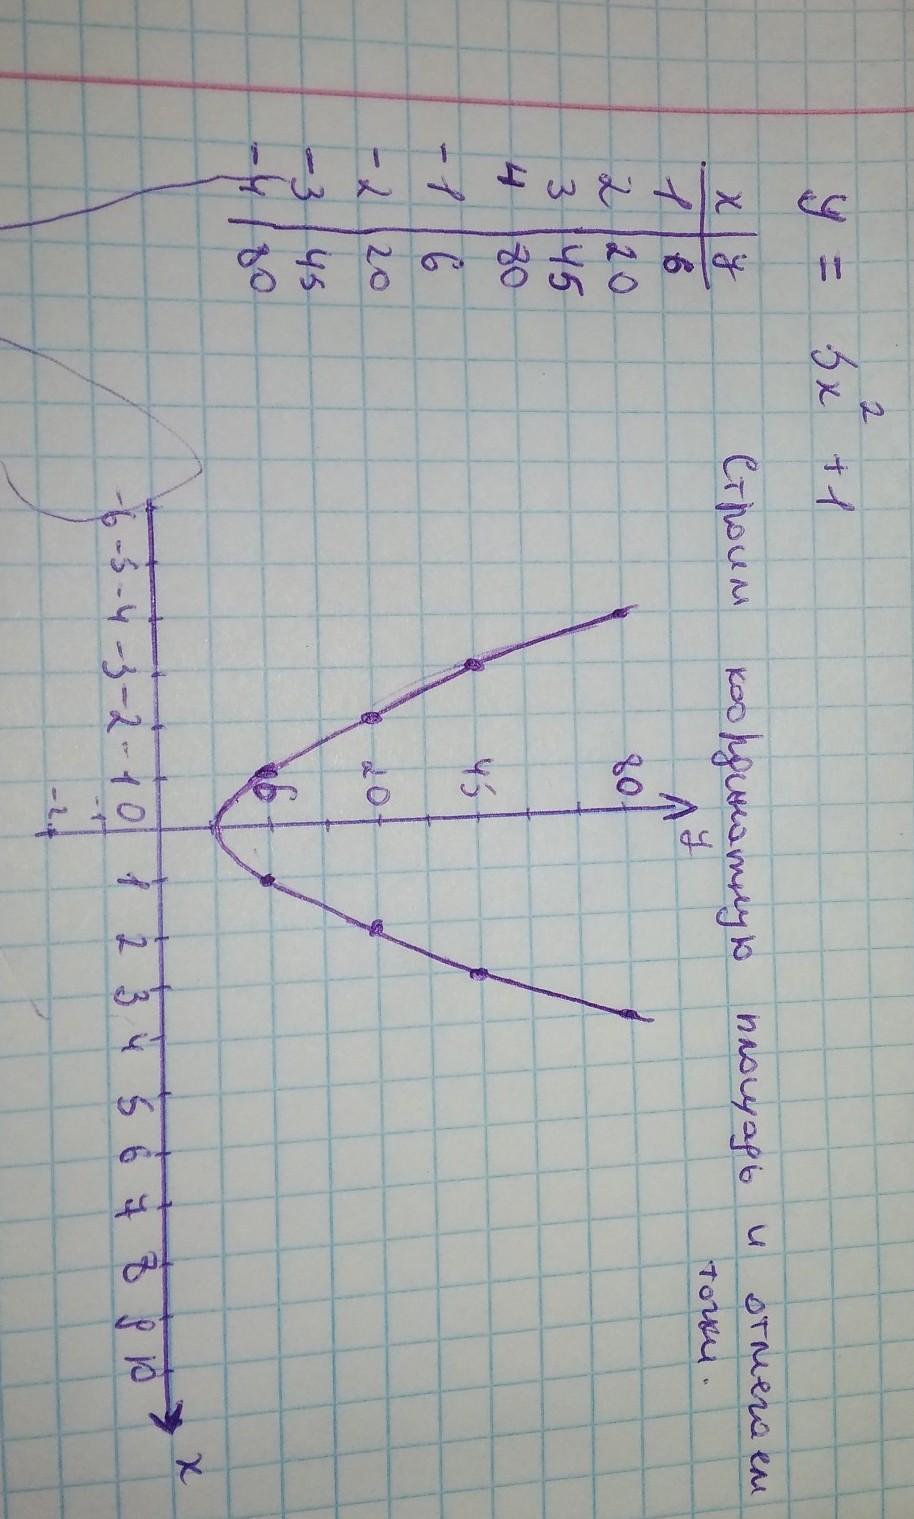 y = 5x² + 1
Строим координатную площадь и отмечаем
точки.
x y
1 6
2 20
3 45
4 80
-1 6
-2 20
-3 45
-4 80
y
80
45
20
6
-6 -5 -4 -3 -2 -1 0 1 2 3 4 5 6 7 8 9 10 x
-1
-2